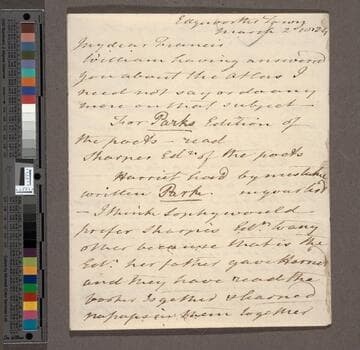 Edgeworths Town
March 2 1824
My dear Francis
William having answered
you about the Atlas I
need not say or do any
more on that subject —
For Parks Edition of
the poets — read
Sharpes Edn of the poets
Harriet had by mistake
written Park in your list
— I think Sophy would
prefer Sharpes Edn to any
other because that is the
Edn her father gave Harriet
and they have read the
books together & learned
in them together